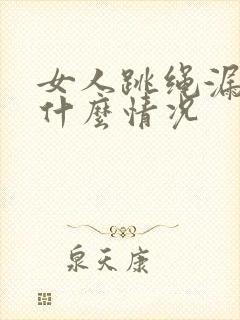 女人跳绳漏
什麼情况
泉天康